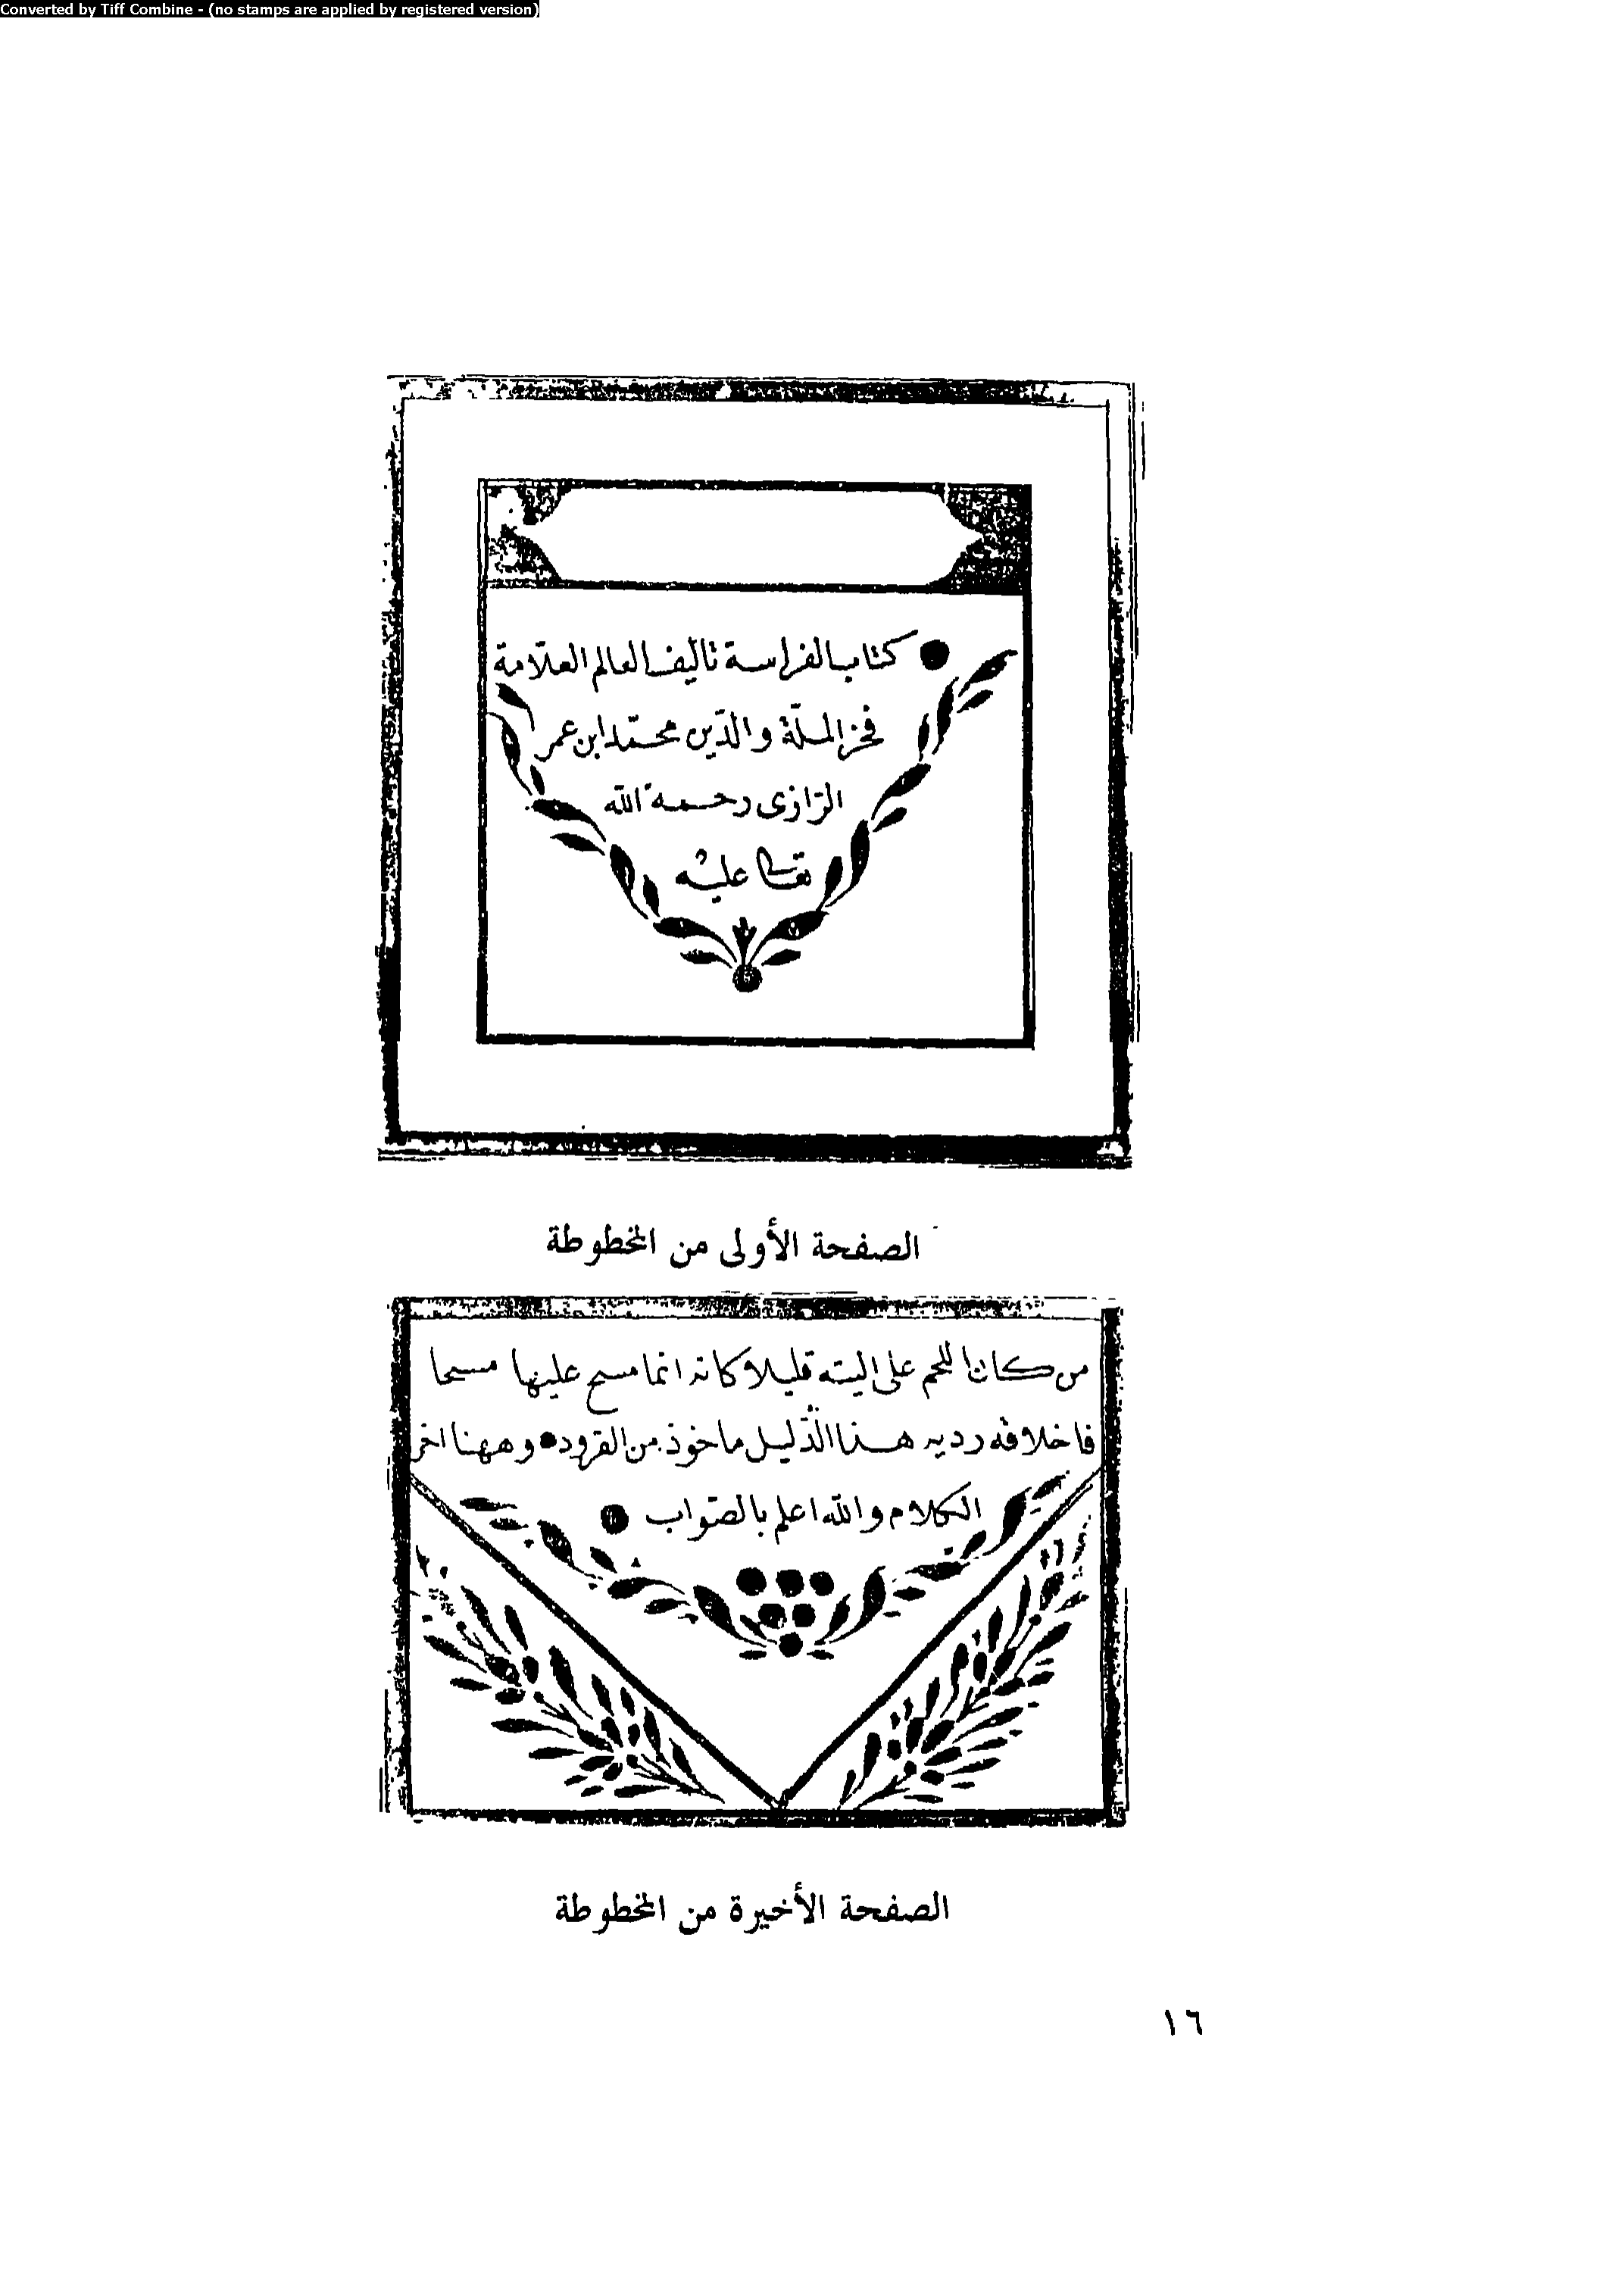 Converted by Tiff Combine - (no stamps are applied by registered version)
كتاب الفراسة تاليف العالم العلّامة
فخر الملّة والدّين محمّد ابن عمر
الرّازى رحمه الله
تعالى عليه
الصفحة الأولى من المخطوطة
من كان اللحم على اليته قليلا كانه انما مسح عليها مسحا
فاخلاقه رديه هذا الدّليل ماخوذ من القرود وههنا اخر
الكلام والله اعلم بالصّواب
الصفحة الأخيرة من المخطوطة
١٦